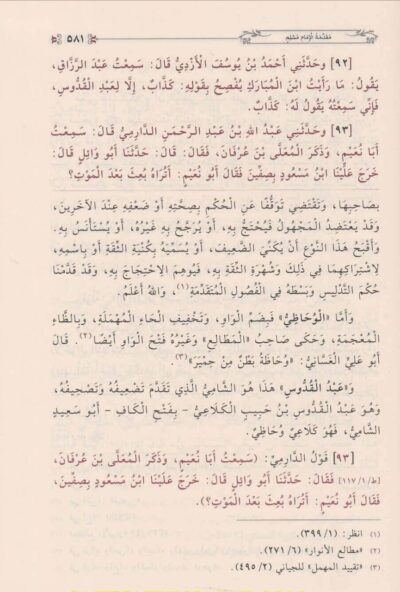 مقدمة الإمام مسلم
٥٨١
[٩٢] وحَدَّثَنِي أَحْمَدُ بْنُ يُوسُفَ الْأَزْدِيُّ قَالَ: سَمِعْتُ عَبْدَ الرَّزَّاقِ،
يَقُولُ: مَا رَأَيْتُ ابْنَ الْمُبَارَكِ يُفْصِحُ بِقَوْلِهِ: كَذَّابٌ، إِلَّا لِعَبْدِ الْقُدُّوسِ،
فَإِنِّي سَمِعْتُهُ يَقُولُ لَهُ: كَذَّابٌ.
[٩٣] وحَدَّثَنِي عَبْدُ اللهِ بْنُ عَبْدِ الرَّحْمَنِ الدَّارِمِيُّ قَالَ: سَمِعْتُ
أَبَا نُعَيْمٍ، وَذَكَرَ الْمُعَلَّى بْنَ عُرْفَانَ، فَقَالَ: قَالَ: حَدَّثَنَا أَبُو وَائِلٍ قَالَ:
خَرَجَ عَلَيْنَا ابْنُ مَسْعُودٍ بِصِفِّينَ فَقَالَ أَبُو نُعَيْمٍ: أَتُرَاهُ بُعِثَ بَعْدَ الْمَوْتِ؟
بِصَاحِبِهَا، وَتَقْتَضِي تَوَقُّفًا عَنِ الْحُكْمِ بِصِحَّتِهِ أَوْ ضَعْفِهِ عِنْدَ الْآخَرِينَ،
وَقَدْ يَعْتَضِدُ الْمَجْهُولُ فَيُحْتَجُّ بِهِ، أَوْ يُرَجَّحُ بِهِ غَيْرُهُ، أَوْ يُسْتَأْنَسُ بِهِ.
وَأَقْبَحُ هَذَا النَّوْعِ أَنْ يُكَنِّيَ الضَّعِيفَ، أَوْ يُسَمِّيَهُ بِكُنْيَةِ الثِّقَةِ أَوْ بِاسْمِهِ،
لِاشْتِرَاكِهِمَا فِي ذَلِكَ وَشُهْرَةِ الثِّقَةِ بِهِ، فَيُوهِمَ الِاحْتِجَاجَ بِهِ، وَقَدْ قَدَّمْنَا
حُكْمَ التَّدْلِيسِ وَبَسْطَهُ فِي الْفُصُولِ الْمُتَقَدِّمَةِ(١)، وَاللهُ أَعْلَمُ.
وَأَمَّا «الْوُحَاظِيُّ» فَبِضَمِّ الْوَاوِ، وَتَخْفِيفِ الْحَاءِ الْمُهْمَلَةِ، وَبِالظَّاءِ
الْمُعْجَمَةِ، وَحَكَى صَاحِبُ «الْمَطَالِعِ» وَغَيْرُهُ فَتْحَ الْوَاوِ أَيْضًا(٢). قَالَ
أَبُو عَلِيٍّ الْغَسَّانِيُّ: «وُحَاظَةُ بَطْنٌ مِنْ حِمْيَرَ»(٣)
وَ«عَبْدُ الْقُدُّوسِ» هَذَا هُوَ الشَّامِيُّ الَّذِي تَقَدَّمَ تَضْعِيفُهُ وَتَصْحِيفُهُ،
وَهُوَ عَبْدُ الْقُدُّوسِ بْنُ حَبِيبٍ الْكَلَاعِيُّ - بِفَتْحِ الْكَافِ - أَبُو سَعِيدٍ
الشَّامِيُّ، فَهُوَ كَلَاعِيٌّ وُحَاظِيٌّ.
[٩٣] قَوْلُ الدَّارِمِيِّ: (سَمِعْتُ أَبَا نُعَيْمٍ، وَذَكَرَ الْمُعَلَّى بْنَ عُرْفَانَ،
[ط/١/١١٧] فَقَالَ: حَدَّثَنَا أَبُو وَائِلٍ قَالَ: خَرَجَ عَلَيْنَا ابْنُ مَسْعُودٍ بِصِفِّينَ،
فَقَالَ أَبُو نُعَيْمٍ: أَتُرَاهُ بُعِثَ بَعْدَ الْمَوْتِ؟).
(١) انظر: (٣٩٩/١).
(٢) «مطالع الأنوار» (٢٧١/٦).
(٣) «تقييد المهمل» للجياني (٤٩٥/٢).